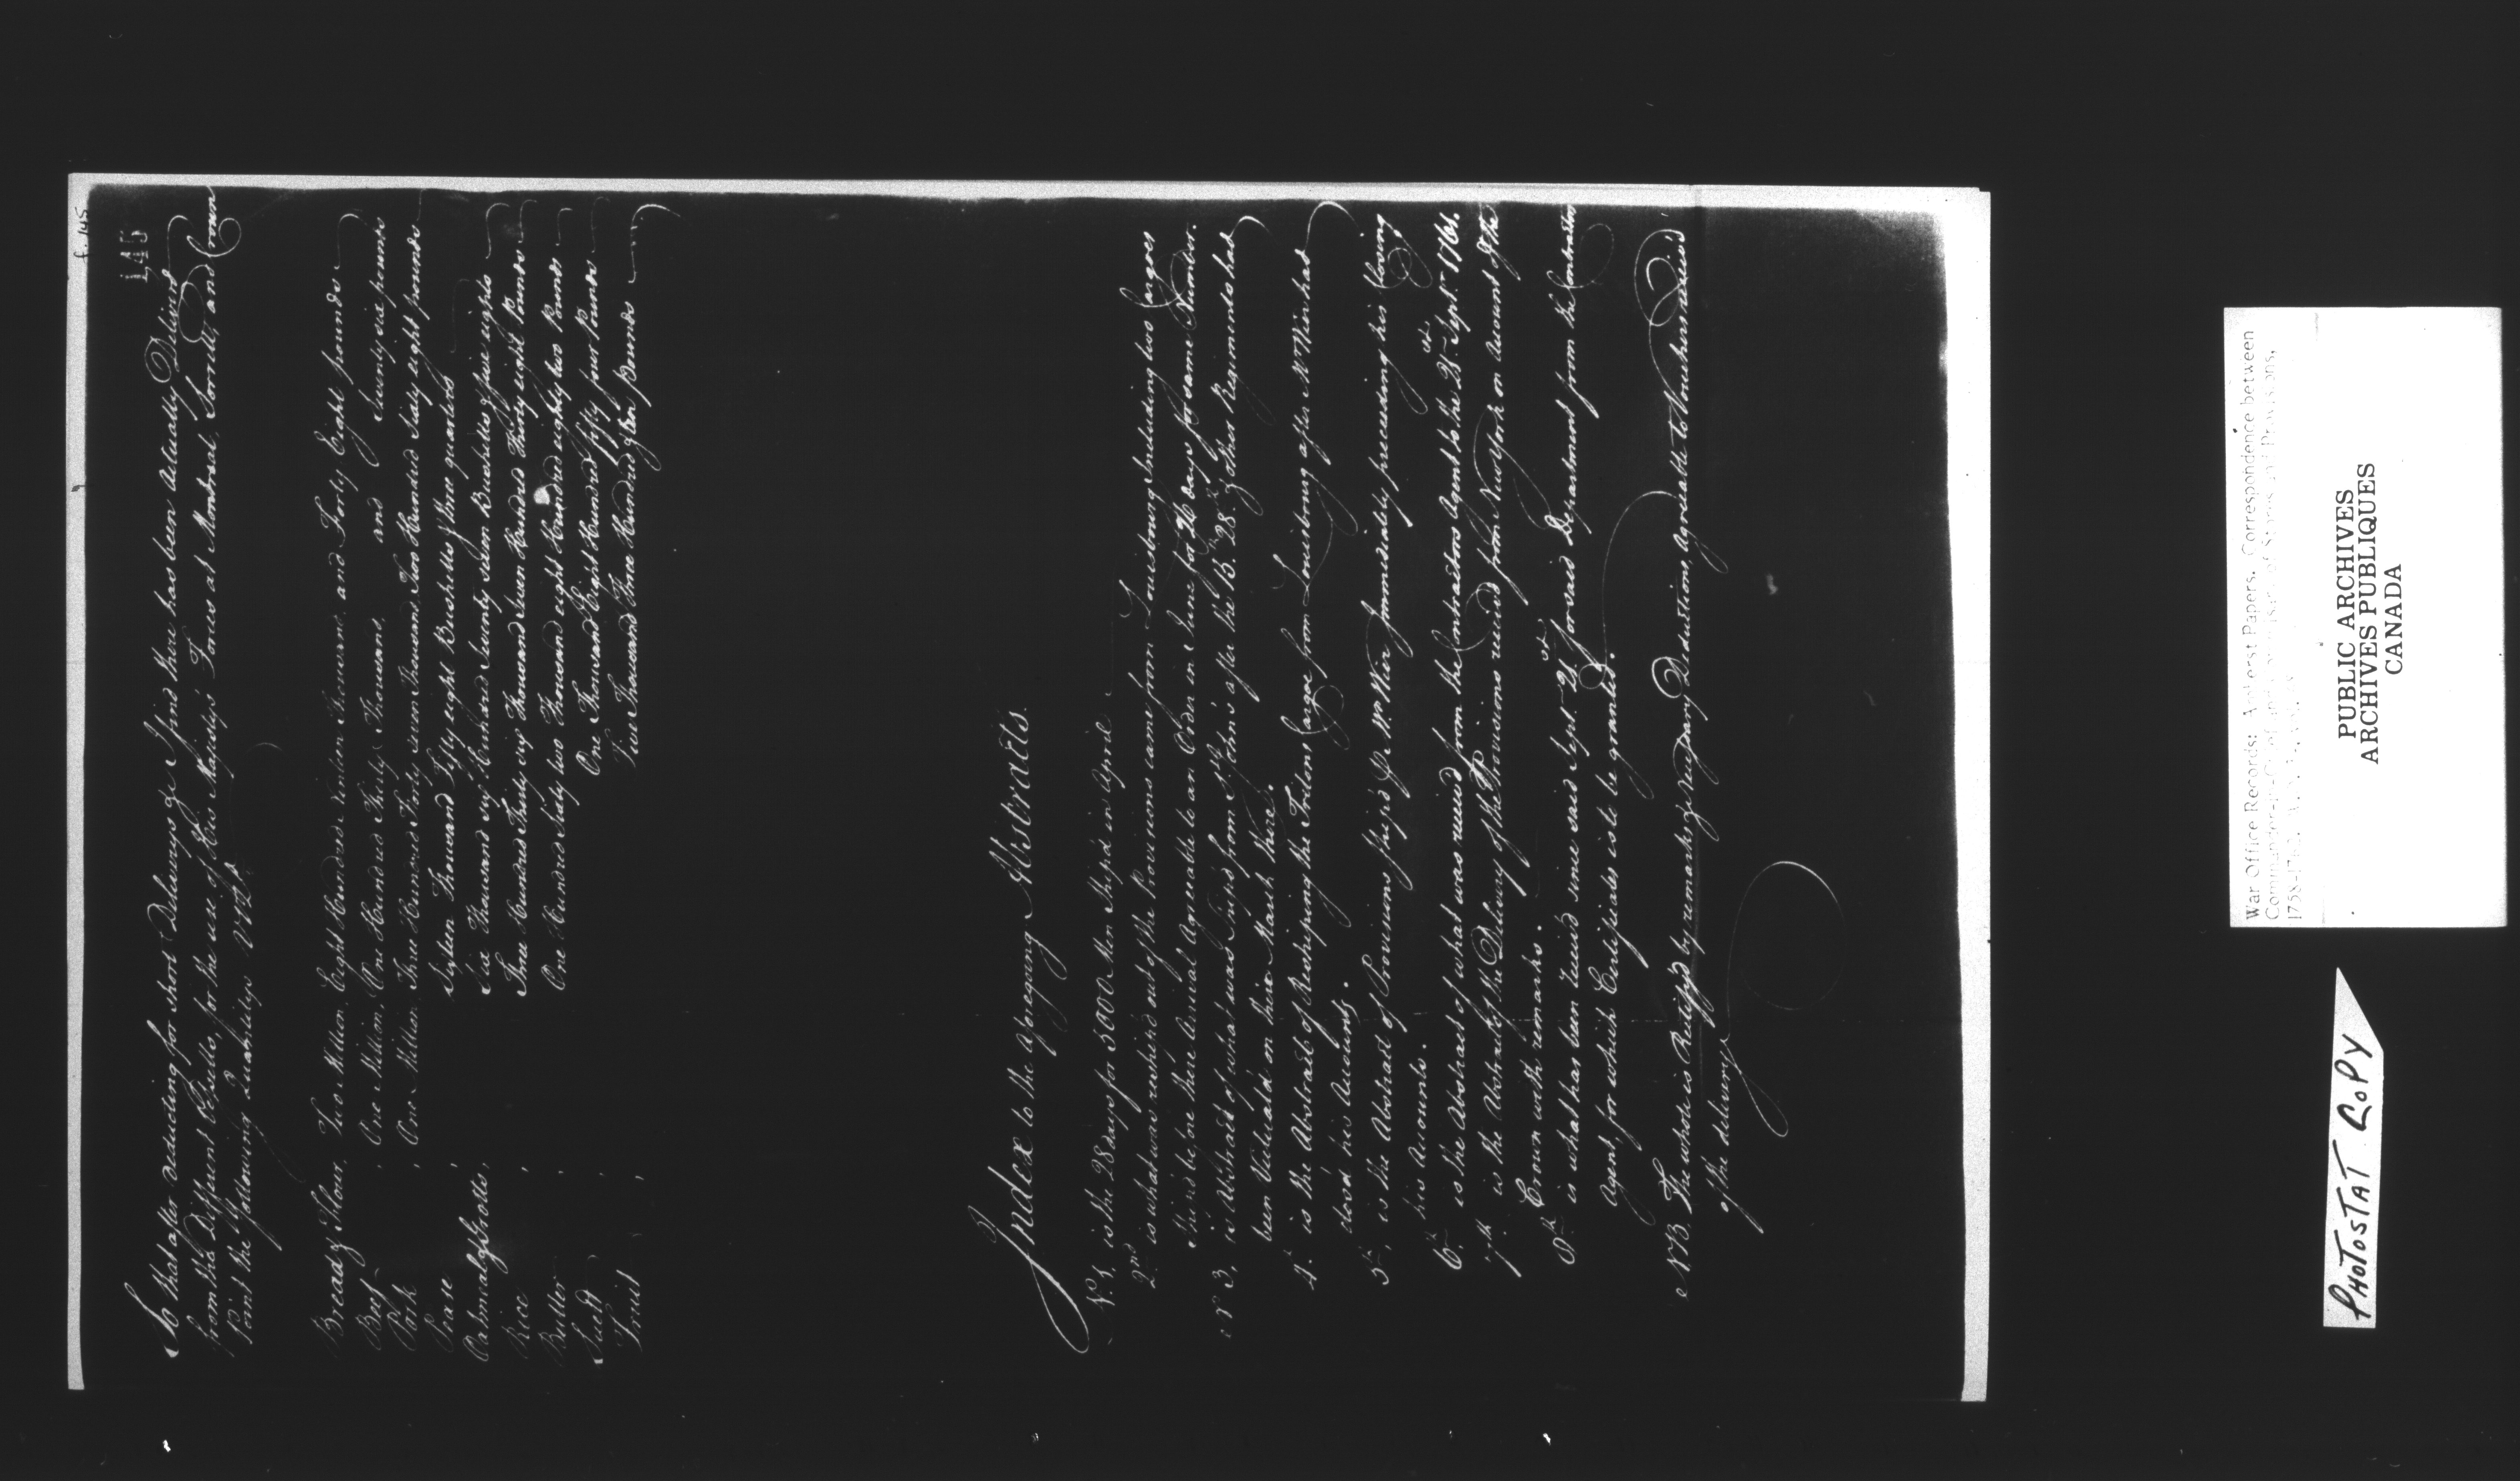 f. 145
145
So that after deducting for short Deliverys &c I find there has been actually Deliver'd
from the Different Vessells, for the use of His Majesty's Forces at Montreal, Sorrell, and Crown
Point the following Quantitys Vizt
Bread & Flour, Two Million Eight Hundred Thousand and Forty Eight pounds
Beef One Million, One Hundred Thirty Thousand, and Seventy six pounds
Pork One Million Three Hundred Forty seven Thousand Two Hundred Sixty eight pounds
Pease Sixteen Thousand Fifty eight Bushells & three quarters
Oatmeal & Grotts, Six Thousand Six Hundred Seventy Seven Bushells & five eights
Rice Three Hundred Thirty six Thousand Seven Hundred Thirty eight Pounds
Butter One Hundred Sixty two Thousand eight Hundred eighty two Pounds
Suett One Thousand Eight Hundred fifty four Pounds
Fruit Five Thousand Three Hundred & ten Pounds
Index to the aforegoing Abstracts.
No. 1, is the 28 days for 5000 Men Ship'd in April
2nd is what was reship'd out of the Provisions came from Louisbourg Including two Cargoes
Ship'd before there arrival Agreeable to an Order in June for 26 days for same Number.
No 3, is Abstract of what was Ship'd from St. Johns after the 15. 28. & other Regiments had
been Victuall'd on their March there.
4th is the Abstract of Reshiping the Tritons Cargoe from Louisbourg after Mr Wier had
closd his Accounts.
5th, is the Abstract of Provisions Ship'd Pr Mr. Wier Immediatly preceeding his Closing
his Accounts.
6th is the Abstract of what was receiv'd from the Contractors Agent to the 21st Septr. 1761.
7th. is the Abstract of the Delivery of the Provisions receiv'd from New York on Account of the
Crown with remarks.
8th is what has been receiv'd since said Septr 21st forsaid Department from the Contractors
Agent, for which Certificates is to be granted.
NB. The whole is Rectify'd by remarks & Necessary Deductions, Agreeable to Vouchers receiv'd
of the delivery
War Office Records: Amherst Papers. Correspondence between
PUBLIC ARCHIVES
ARCHIVES PUBLIQUES
CANADA
PHOTOSTAT COPY